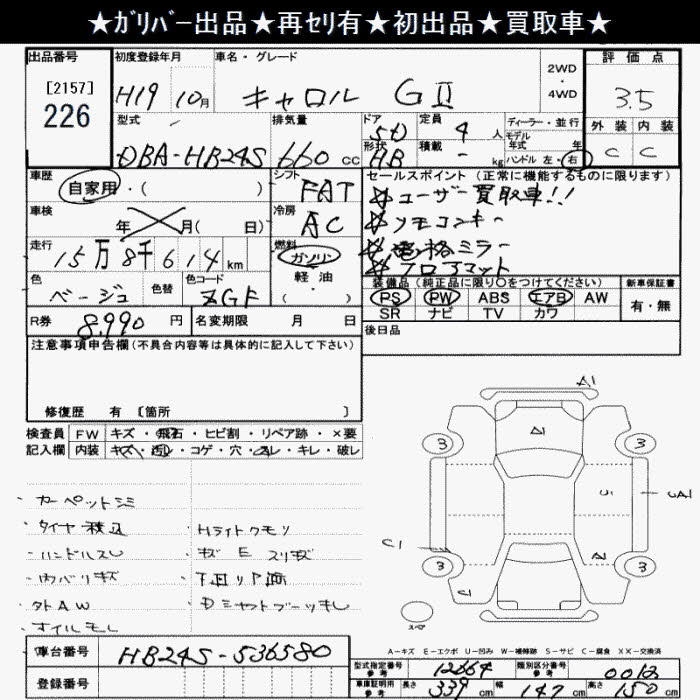 ★ｶﾞﾘﾊﾞｰ出品★再ｾﾘ有★初出品★買取車★
出品番号
[2157]
226
初度登録年月
H19 10月
車名・グレード
キャロル GⅡ
2WD
・
4WD
評価点
3.5
外装 内装
C C
型式
DBA-HB24S
排気量
660 cc
ドア
5D
形状
HB
定員
4 人
積載
- kg
ディーラー・並行
モデル
年式 年
ハンドル 左・右
車歴
自家用・( )
シフト
FAT
車検
年 月( 日)
冷房
AC
走行
15万8千614km
燃料
ガソリン
軽・油
( )
色
ベージュ
色替
色コード
ZGF
R券
8,990 円
名変期限 月 日
セールスポイント (正常に機能するものに限ります)
☆ユーザー買取車!!
☆リモコンキー
☆電格ミラー
☆フロアマット
装備品 (純正品に限り〇をつけてください)
PS PW ABS エアB AW
SR ナビ TV カワ
新車保証書
有・無
後日品
注意事項申告欄(不具合内容等は具体的に記入して下さい)
修復歴 有 [箇所 ]
検査員
記入欄
FW キズ・飛石・ヒビ割・リペア跡・×要
内装 キズ・汚レ・コゲ・穴・スレ・キレ・破レ
・カーペットシミ
・タイヤ積込
・ハンドルスレ
・内バリキズ
・外AW
・オイルモレ
・Hライトクモリ
・キズ E スリキズ
・Dシャフトブーツキレ
A1
A1
3
3
3
3
C1
A2
スペ
A-キズ E-エクボ U-凹み W-補修跡 S-サビ C-腐食 XX-交換済
車台番号
HB24S-536580
登録番号
型式指定番号
参考
12664
類別区分番号
参考
0012
車庫証明用
参考
長さ 339 cm
幅 147 cm
高さ 150 cm